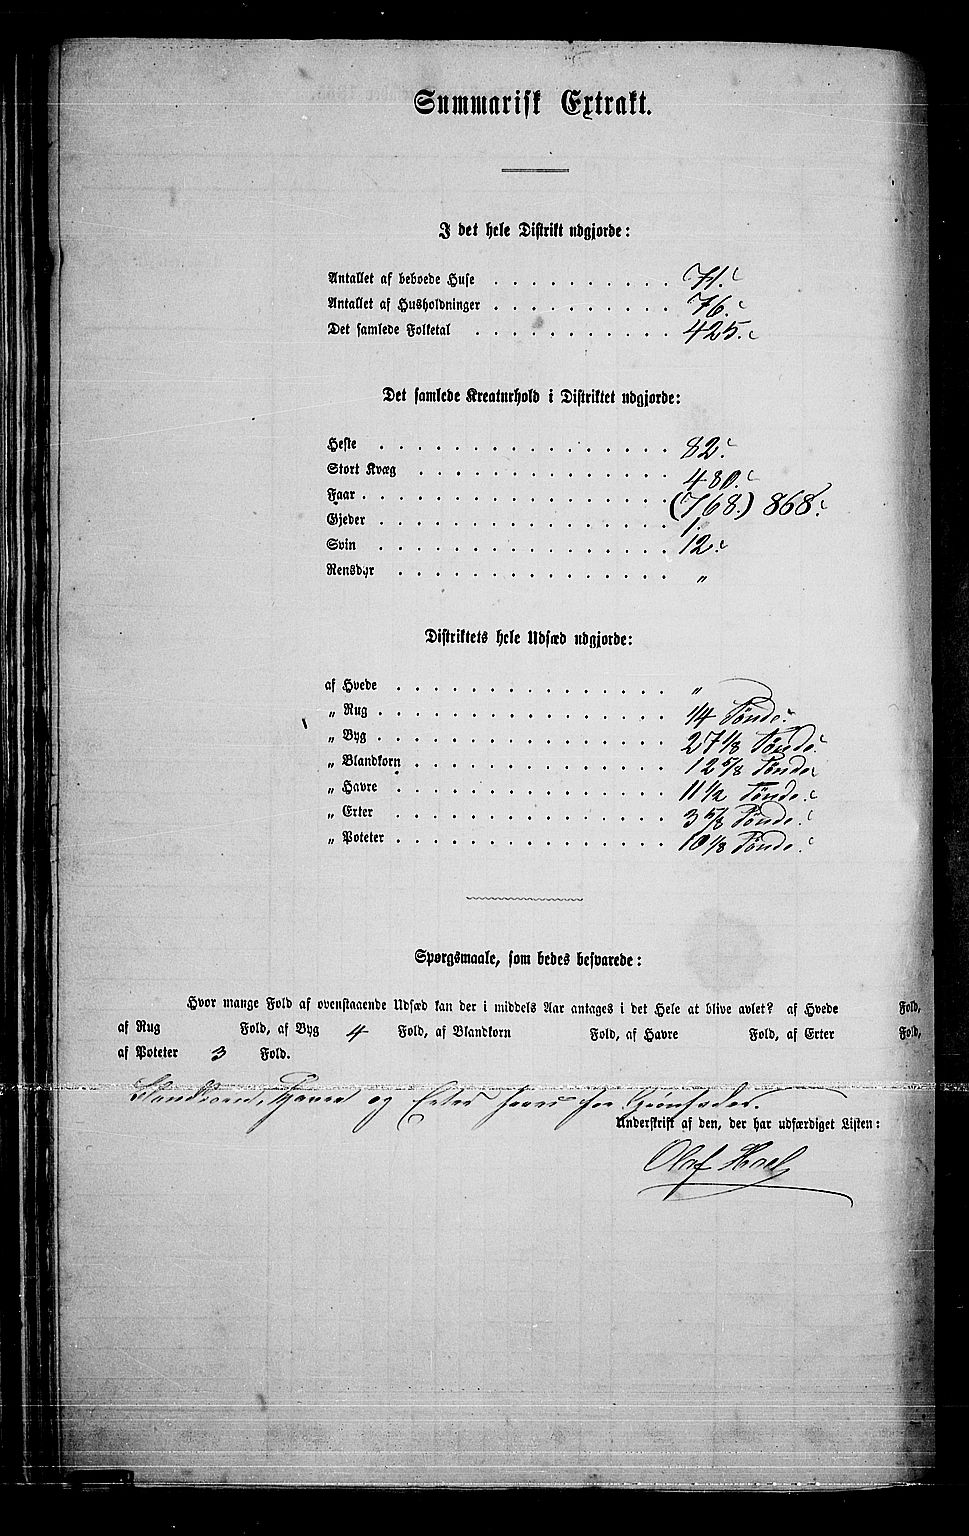 Summarisk Extrakt.
I det hele Distrikt udgjorde:
Antallet af beboede Huse . . . . . . . . . . 71.
Antallet af Husholdninger . . . . . . . . . . 76.
Det samlede Folketal . . . . . . . . . . . 425.
Det samlede Kreaturhold i Distriktet udgjorde:
Heste . . . . . . . . . . . . . . . . 82.
Stort Kvæg . . . . . . . . . . . . . . 480.
Faar . . . . . . . . . . . . . . . . . (768.) 868.
Gjeder . . . . . . . . . . . . . . . . 1.
Svin . . . . . . . . . . . . . . . . 12.
Rensdyr . . . . . . . . . . . . . . . „
Distriktets hele Udsæd udgjorde:
af Hvede . . . . . . . . . . . . . . . „
„ Rug . . . . . . . . . . . . . . . . 1/4 Tønde.
„ Byg . . . . . . . . . . . . . . . . 27 1/8 Tønde.
„ Blandkorn . . . . . . . . . . . . . . 12 5/8 Tønde
„ Havre . . . . . . . . . . . . . . . 11 1/2 Tønde.
„ Erter . . . . . . . . . . . . . . . 3 5/8 Tønde.
„ Poteter . . . . . . . . . . . . . . . 10 1/8 Tønde.
Spørgsmaale, som bedes besvarede:
Hvor mange Fold af ovenstaaende Udsæd kan der i middels Aar antages i det Hele at blive avlet? af Hvede Fold,
af Rug Fold, af Byg 4 Fold, af Blandkorn Fold, af Havre Fold, af Erter Fold,
af Poteter 3 Fold.
Blandkorn, Havre og Erter for Grønfoder.
Underskrift af den, der har udfærdiget Listen:
Olaf Hoel